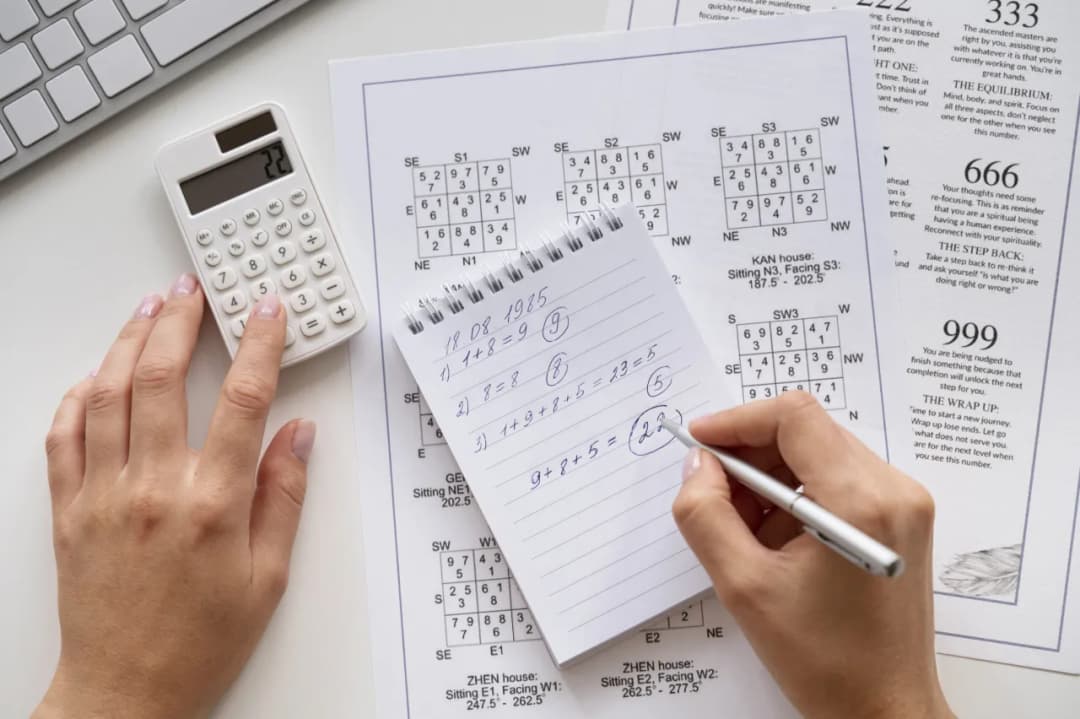 22
7
8
9
÷
4
5
6
×
3
−
=
+
18.08.1985
1) 1+8=9 9
2) 8=8 8
3) 1+9+8+5=23=5
5
9+8+5= 22
SE S1 SW
5 2 9 7 7 9
7 3 5
E 6 1 4 3 2 5 W
6 8 1
1 6 8 8 3 4
2 4 9
NE N1
SE S2 SW
3 4 8 8 1 6
7 3 5
E 2 5 4 3 6 1 W
6 8 6
5 2
9
NW
SE S3 SW
3 4 8 8 1 6
7 3 5
E 2 5 4 3 6 1 W
6 8 6
7 9 9 7 5 2
2 4 9
NE N3 NW
KAN house:
Sitting N3, Facing S3:
187.5° - 202.5°
S SW3 W
6 9 8 2 4 7
3 5 1
SE 1 4 2 5 3 6 NW
7 8 9
9 3 7 1
4
N
SE
4
6
E
Sitting NE1
202.5°
SW W1
9 7 4 3
5 1
S 2 5 6 1
3 8
7 9 8 8 3
7 6 2
SE E1
ZHEN house:
Sitting E1, Facing W1:
247.5° - 262.5°
2
E2 NE
ZHEN house:
Sitting E2, Facing W2:
262.5° - 277.5°
are manifesting
quickly! Make sure
focusing
222
Everything is
as it's supposed
you are on the
path.
HT ONE:
time. Trust in
Don't think of
want when you
333
The ascended masters are
right by you, assisting you
with whatever it is that you're
currently working on. You're in
great hands.
THE EQUILIBRIUM:
Mind, body, and spirit. Focus on
all three aspects, don't neglect
one for the other when you see
this number.
ahead
are for
getting
666
Your thoughts need some
re-focusing. This is reminder
that you are a spiritual being
having a human experience.
Reconnect with your spirituality.
THE STEP BACK:
Take a step back to re-think it
and ask yourself "is what you are
doing right or wrong?"
999
You are being nudged to
finish something because that
completion will unlock the next
step for you.
THE WRAP UP:
Time to start a new journey.
Wrap up lose ends. Let go
what does not serve you.
are for the next level when
you see this number.